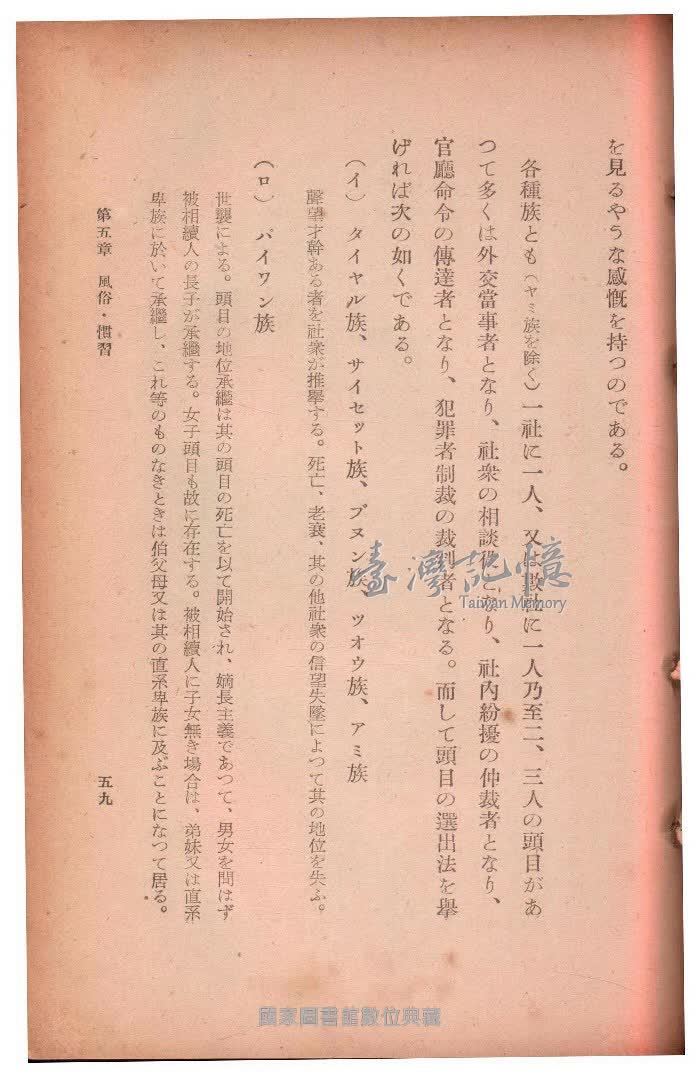 を見るやうな感慨を持つのである。
各種族とも(ヤミ族を除く)一社に一人、又は數社に一人乃至二、三人の頭目があ
つて多くは外交當事者となり、社衆の相談役となり、社內紛擾の仲裁者となり、
官廳命令の傳達者となり、犯罪者制裁の裁判者となる。而して頭目の選出法を擧
げれば次の如くである。
(イ) タイヤル族、サイセット族、ブヌン族、ツオウ族、アミ族
聲望才幹ある者を社衆が推擧する。死亡、老衰、其の他社衆の信望失墜によつて其の地位を失ふ。
(ロ) パイワン族
世襲による。頭目の地位承繼は其の頭目の死亡を以て開始され、嫡長主義であつて、男女を問はず
被相續人の長子が承繼する。女子頭目も故に存在する。被相續人に子女無き場合は、弟妹又は直系
卑族に於いて承繼し、これ等のものなきときは伯父母又は其の直系卑族に及ぶことになつて居る。
第五章 風俗・慣習
五九
臺灣記憶
Taiwan Memory
國家圖書館數位典藏